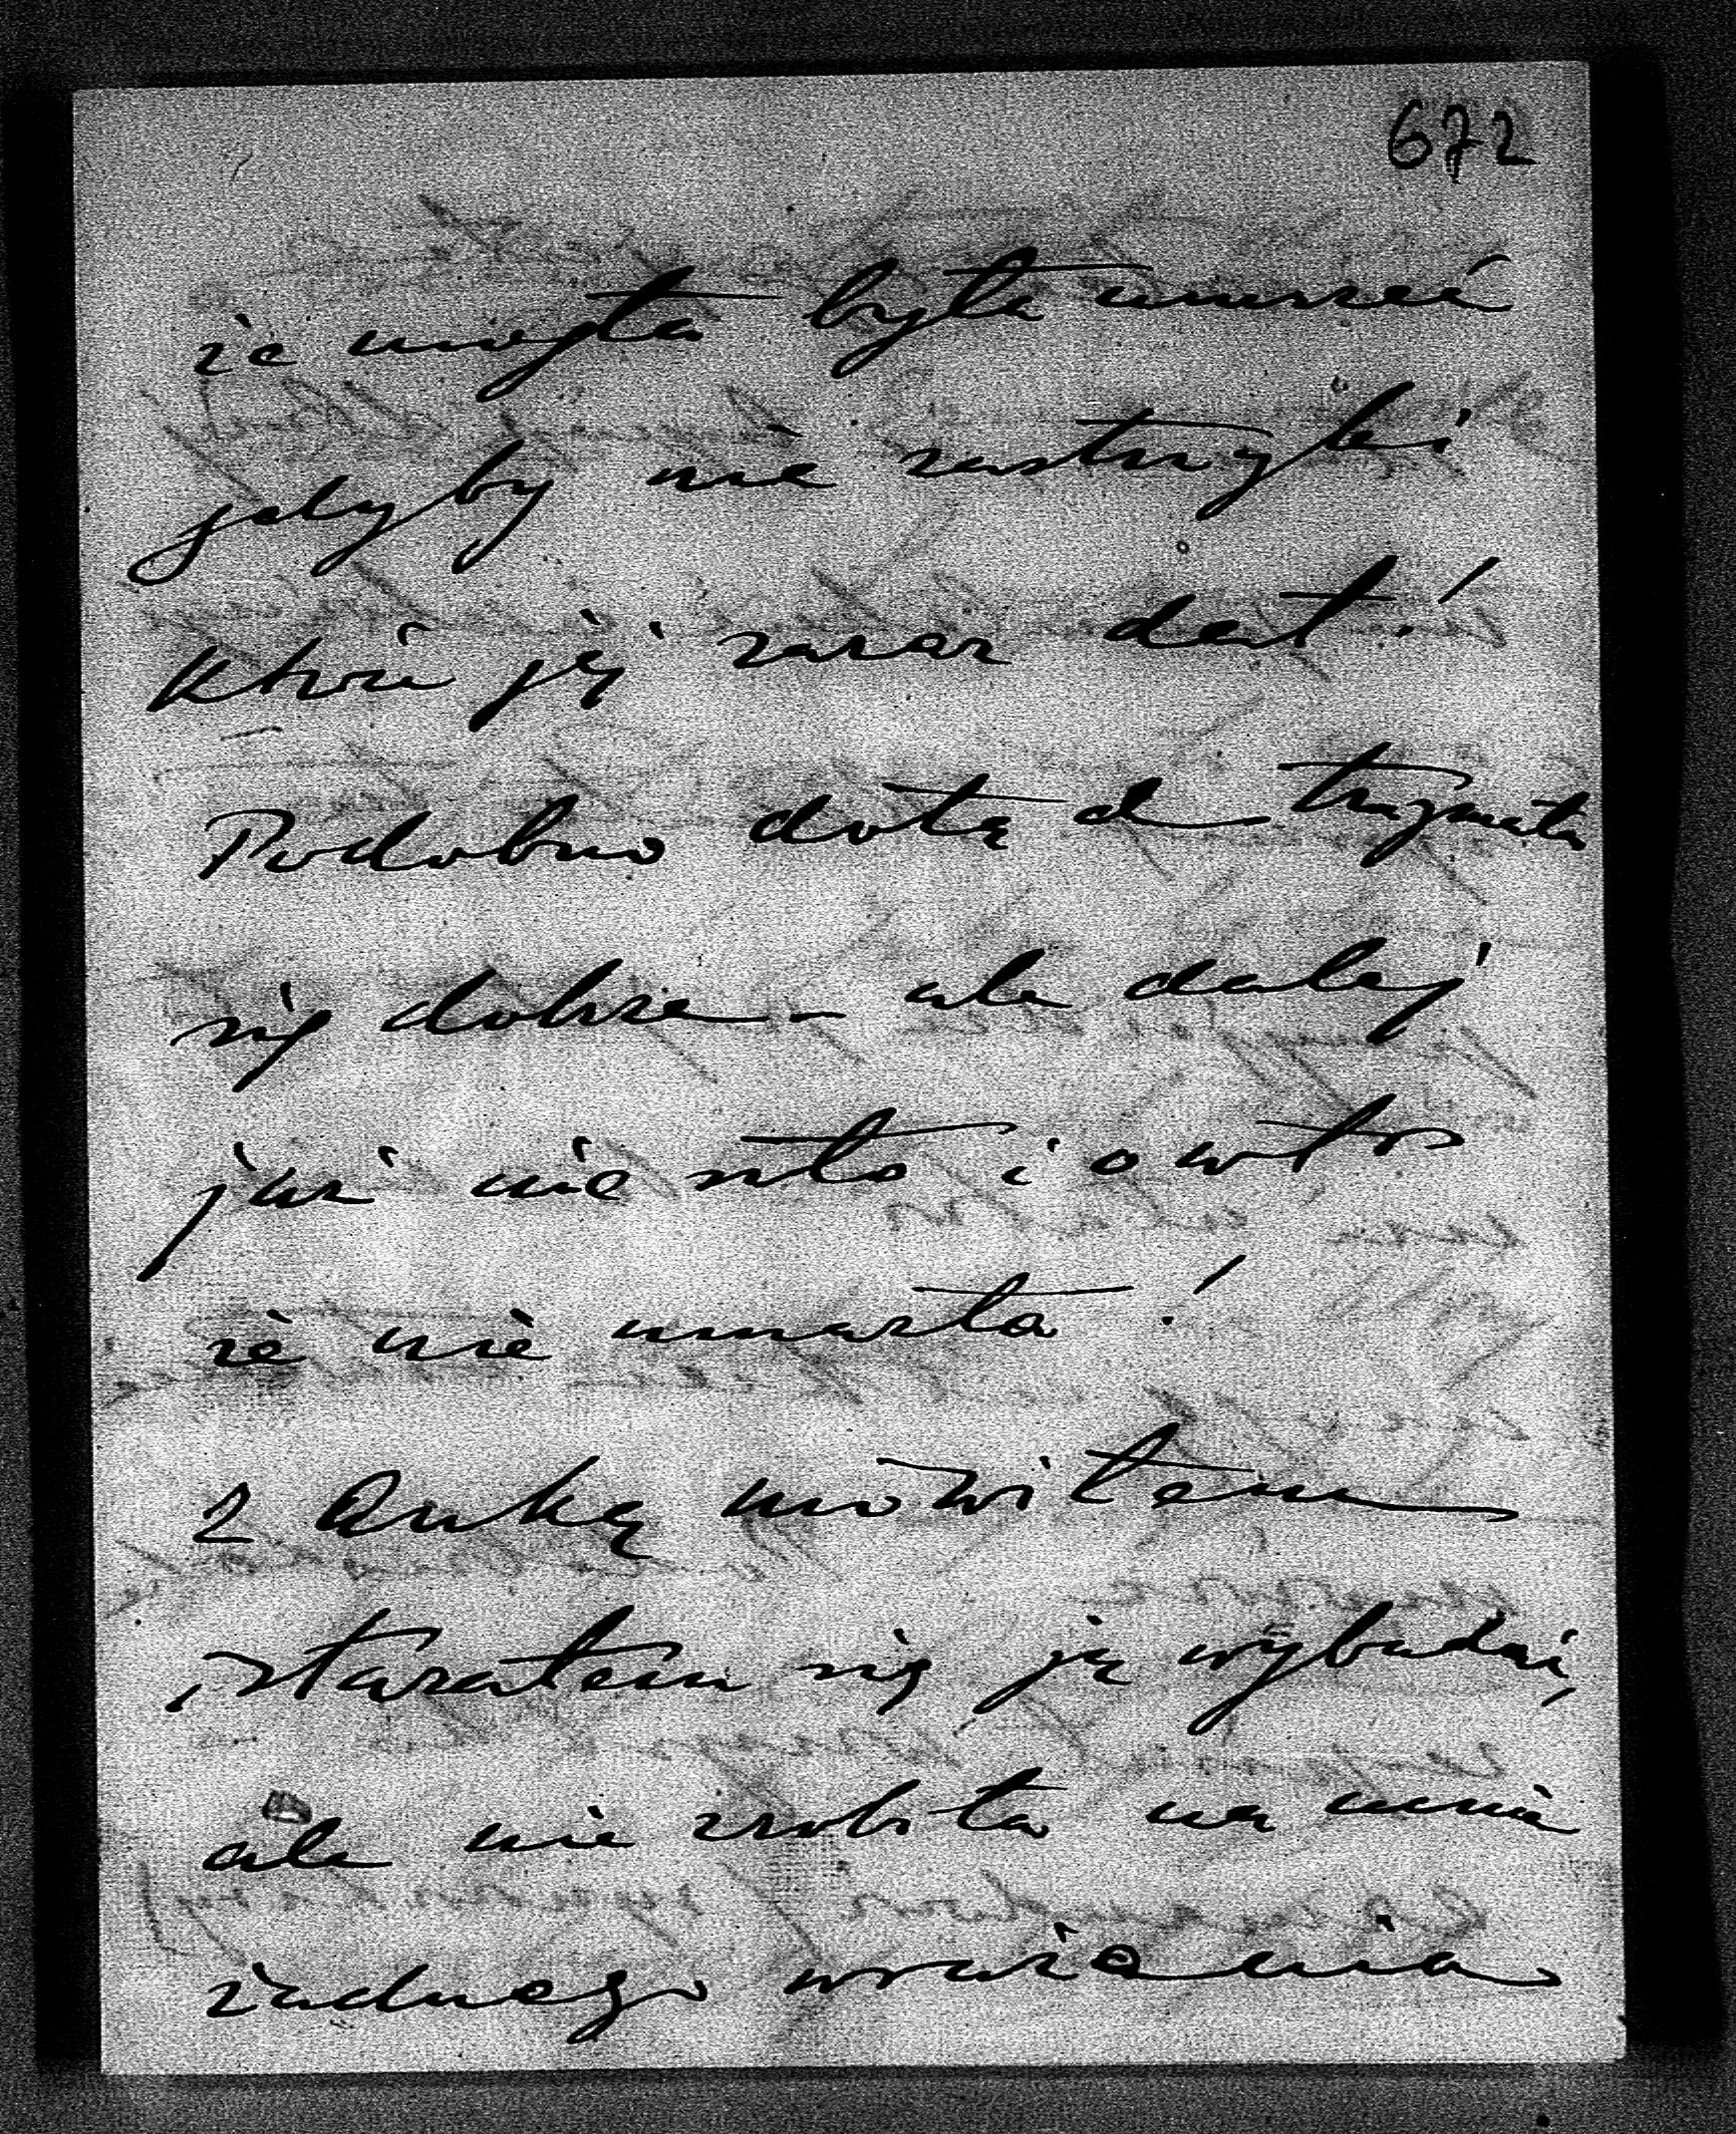 672
że mogła była umrzeć
gdyby nie zastrzyki
które jej zaraz dał!
Podobno dotąd trzymała
się dobrze – ale dalej
już nie szło i o włos
że nie umarła!
Z Anką mówiłem
, starałem się ją wybadać,
ale nie zrobiła na mnie
żadnego wrażenia